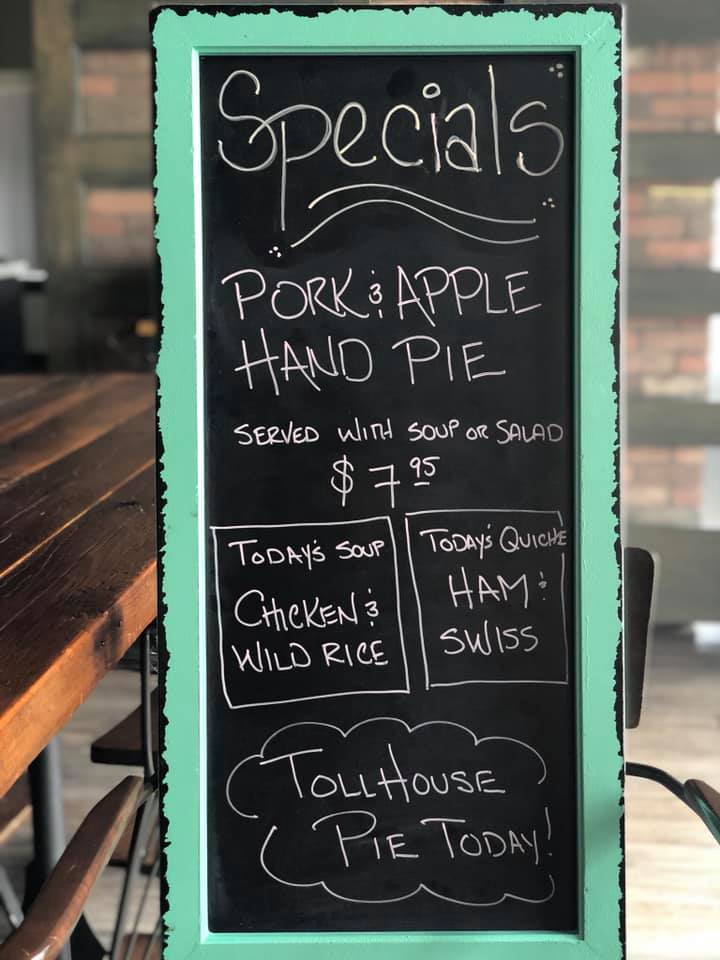 Specials
PORK & APPLE
HAND PIE
SERVED WITH SOUP OR SALAD
$7.95
TODAY'S SOUP
CHICKEN &
WILD RICE
TODAY'S QUICHE
HAM &
SWISS
TOLLHOUSE
PIE TODAY!